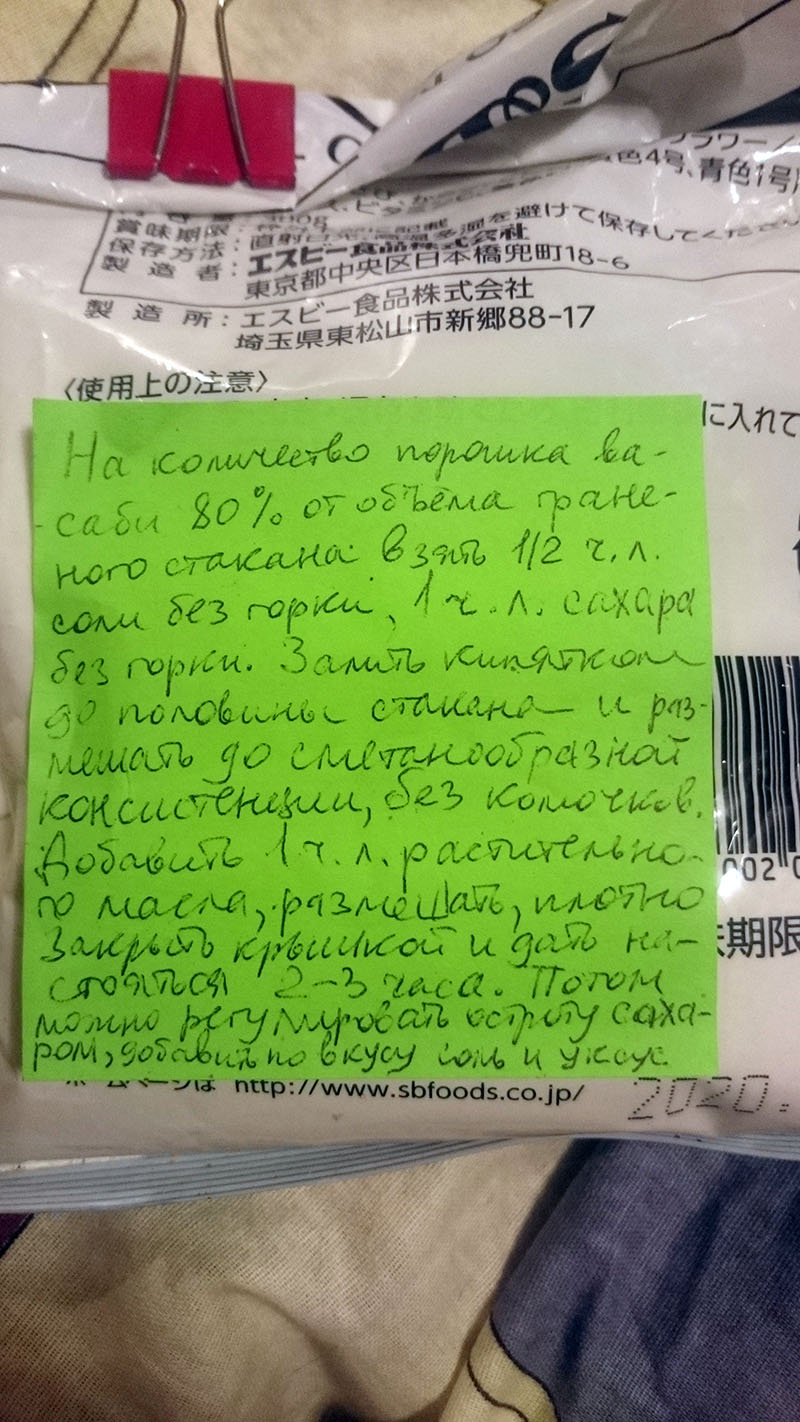 フラワー
色4号、青色1号
300g
賞味期限:
保存方法:直射日光、高温多湿を避けて保存してください
製造者:エスビー食品株式会社
東京都中央区日本橋兜町18-6
製造所:エスビー食品株式会社
埼玉県東松山市新郷88-17
〈使用上の注意〉
に入れて
На количество порошка ва-
саби 80% от объёма гране-
ного стакана взять 1/2 ч.л.
соли без горки, 1 ч.л. сахара
без горки. Залить кипятком
до половины стакана и раз-
мешать до сметанообразной
консистенции, без комочков.
Добавить 1 ч.л. растительно-
го масла, размешать, плотно
закрыть крышкой и дать на-
стояться 2-3 часа. Потом
можно регулировать остроту саха-
ром, добавить по вкусу соль и уксус.
002
期限
ホームページは http://www.sbfoods.co.jp/
2020.